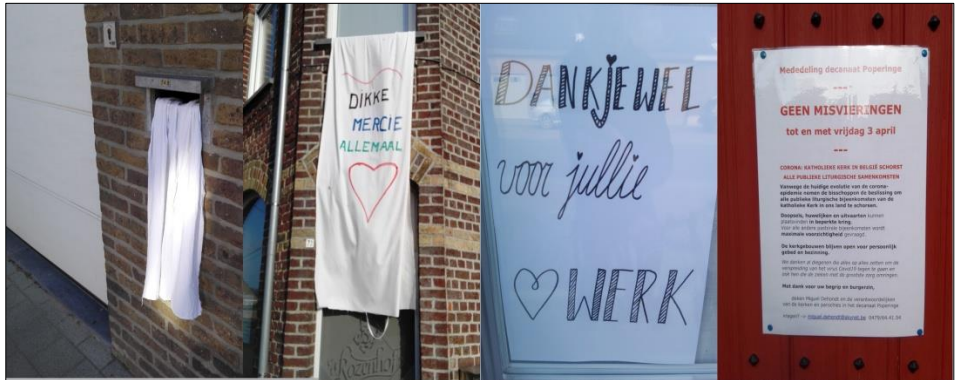 DIKKE
MERCIE
ALLEMAAL
Rozenhof
DANKJEWEL
voor jullie
WERK
Mededeling decanaat Poperinge
---
GEEN MISVIERINGEN
tot en met vrijdag 3 april
---
CORONA: KATHOLIEKE KERK IN BELGIË SCHORST
ALLE PUBLIEKE LITURGISCHE SAMENKOMSTEN
Vanwege de huidige evolutie van de corona-
epidemie nemen de bisschoppen de beslissing om
alle publieke liturgische bijeenkomsten van de
katholieke Kerk in ons land te schorsen.
Doopsels, huwelijken en uitvaarten kunnen
plaatsvinden in beperkte kring.
Voor alle andere pastorale bijeenkomsten wordt
maximale voorzichtigheid gevraagd.
De kerkgebouwen blijven open voor persoonlijk
gebed en bezinning.
We danken al diegenen die alles op alles zetten om de
verspreiding van het virus Covid19 tegen te gaan en
Met dank voor uw begrip en burgerzin,